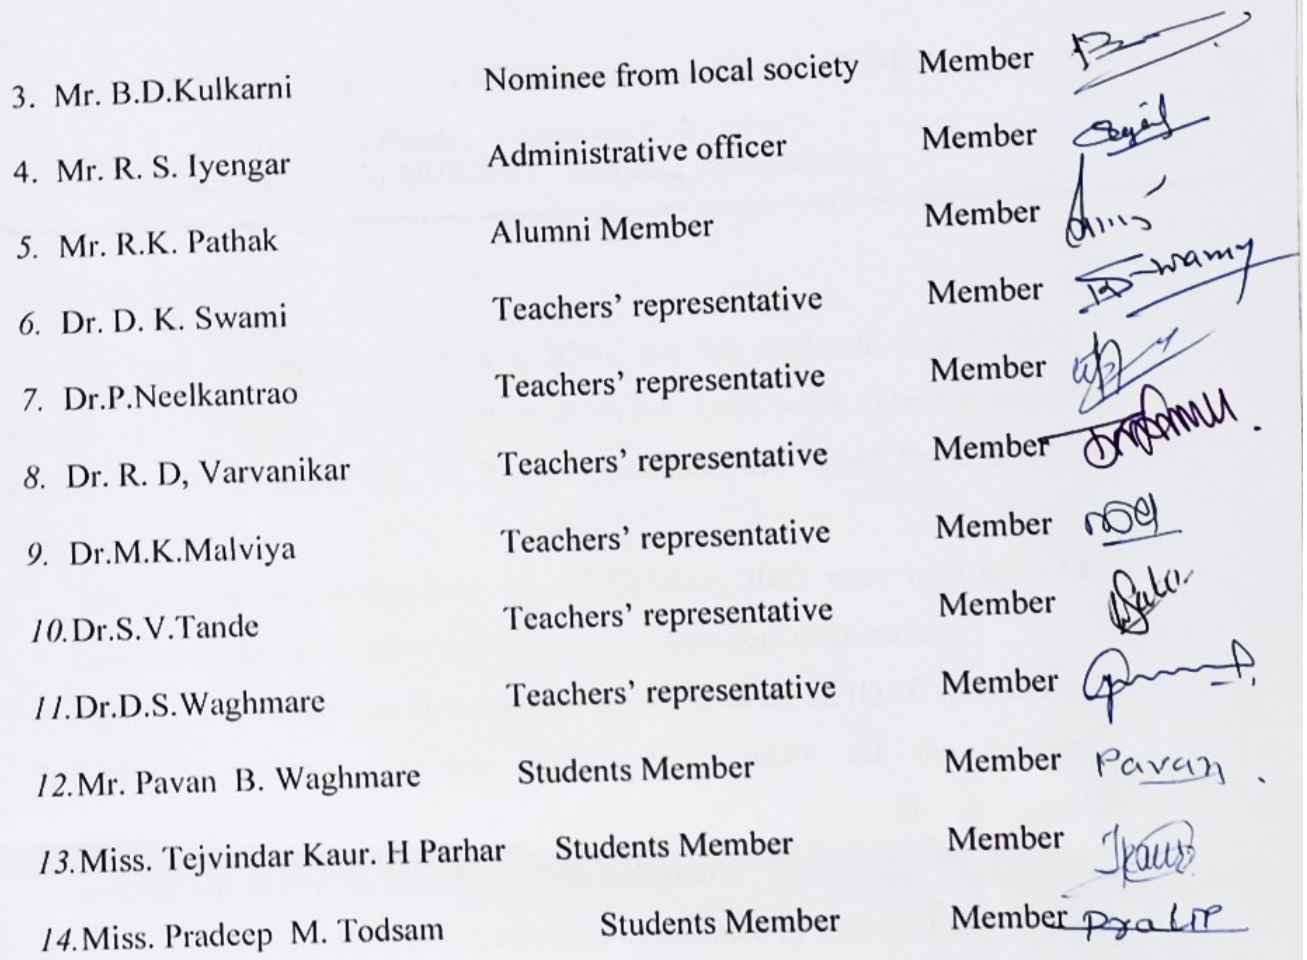 3. Mr. B.D.Kulkarni Nominee from local society Member
4. Mr. R. S. Iyengar Administrative officer Member
5. Mr. R.K. Pathak Alumni Member Member
6. Dr. D. K. Swami Teachers' representative Member
7. Dr.P.Neelkantrao Teachers' representative Member
8. Dr. R. D, Varvanikar Teachers' representative Member
9. Dr.M.K.Malviya Teachers' representative Member
10.Dr.S.V.Tande Teachers' representative Member
11.Dr.D.S.Waghmare Teachers' representative Member
12.Mr. Pavan B. Waghmare Students Member Member Pavan
13.Miss. Tejvindar Kaur. H Parhar Students Member Member
14.Miss. Pradeep M. Todsam Students Member Member